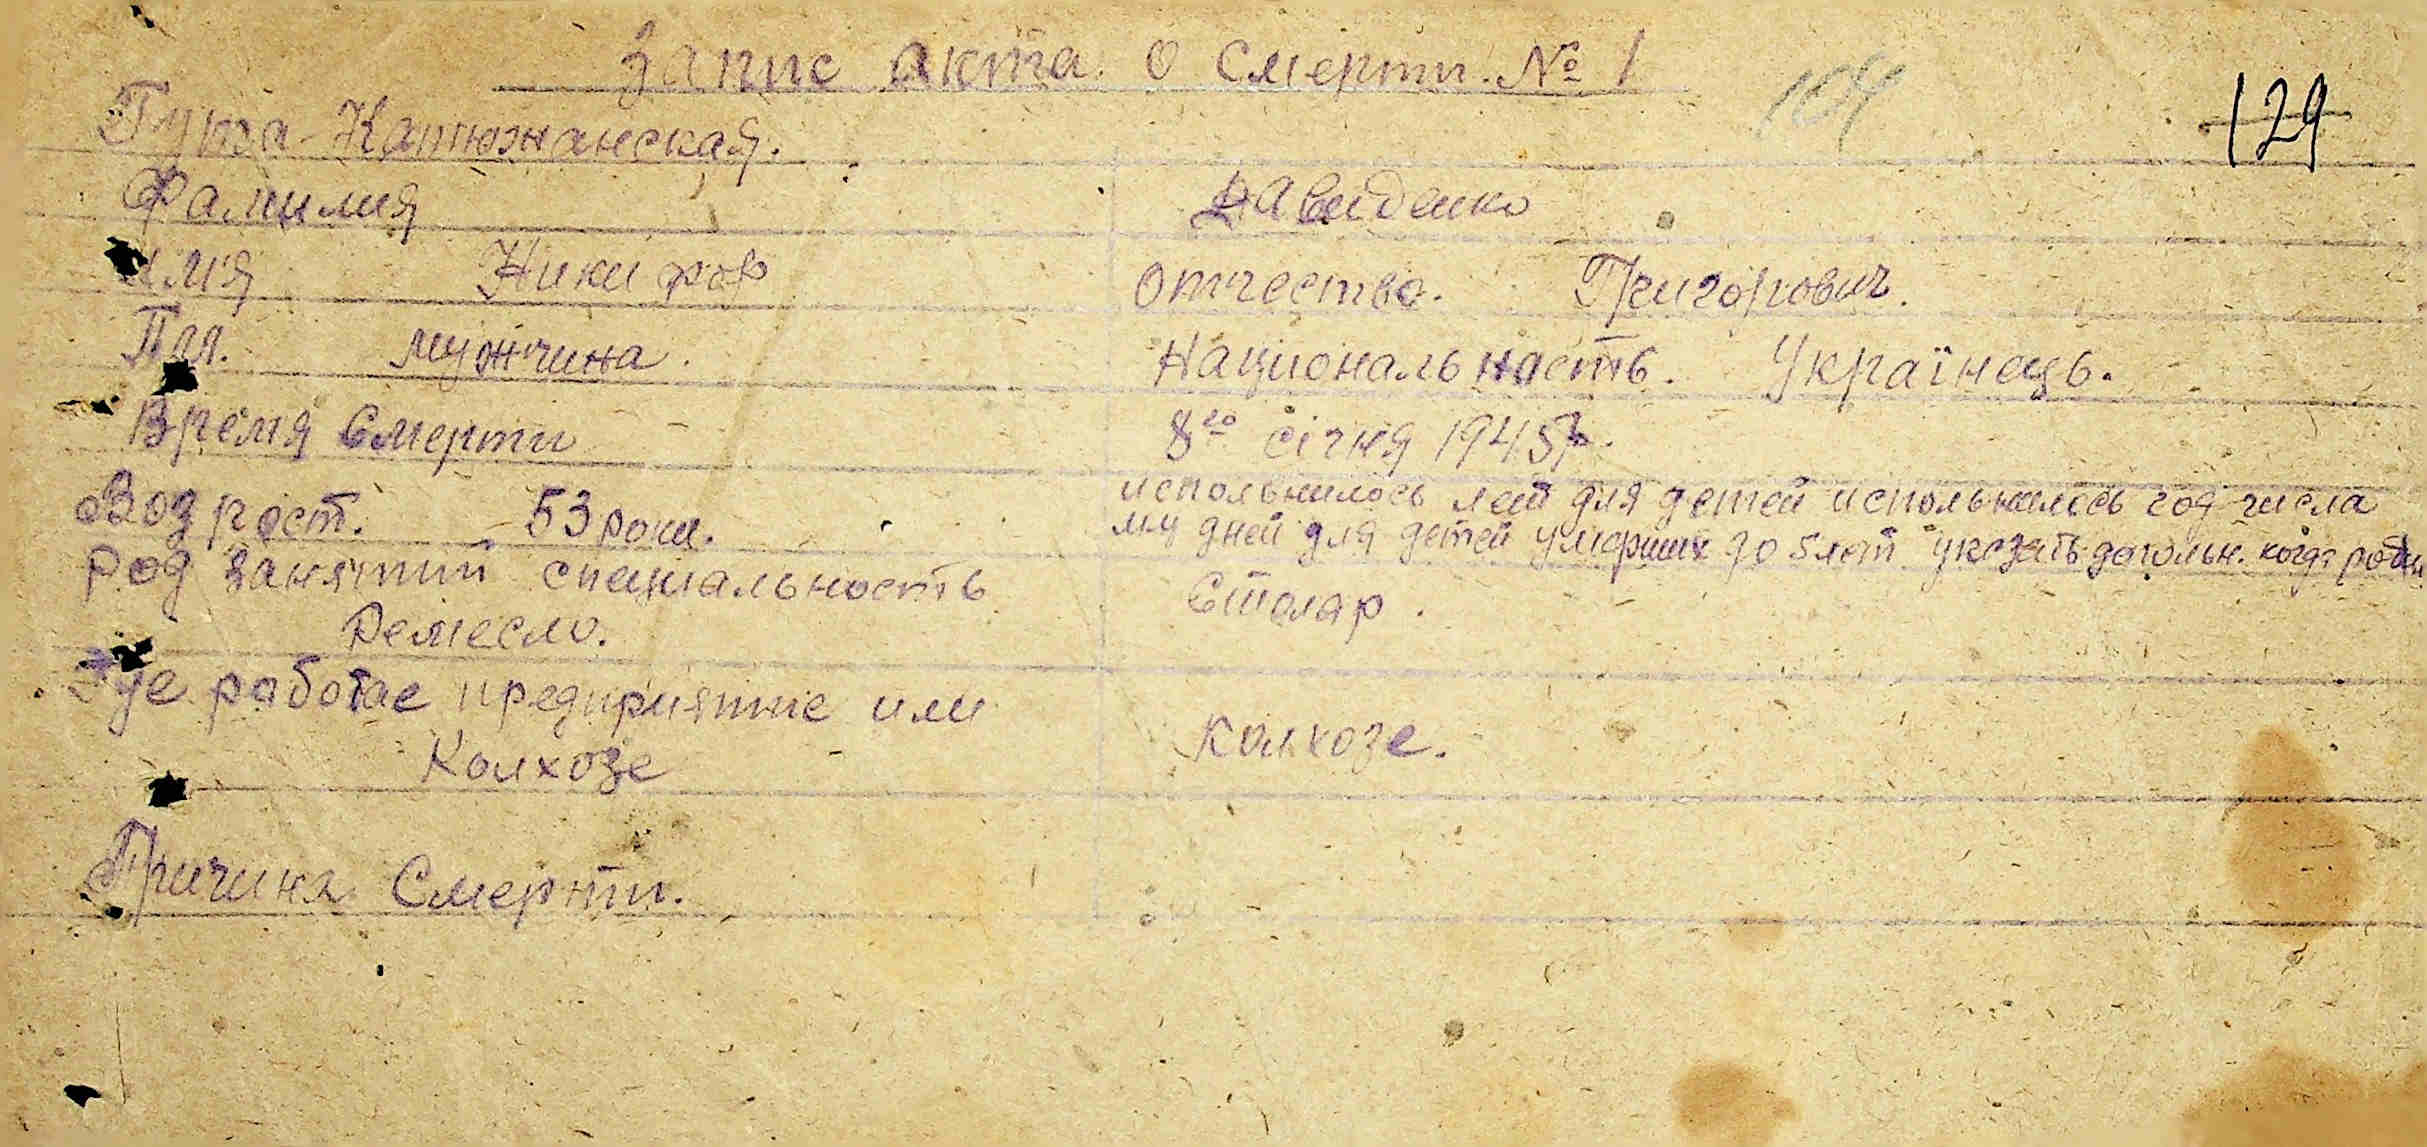 Запис акта о смерти № 1
104
129
Гута-Катюжанская.
Фамилия Давиденко
имя Никифор отчество. Григорович.
Пол. мужчина. Националь ность. Українець.
Время Смерти 8го січня 1945р.
Возрост. 53 роки. испольнилось лет для детей испольнилось год числа
мц дней для детей умерших до 5 лет указать когда
род занятий специальность Столяр.
Ремесло.
Где работае предприятие или
Колхозе колхозе.
Причина Смерти.